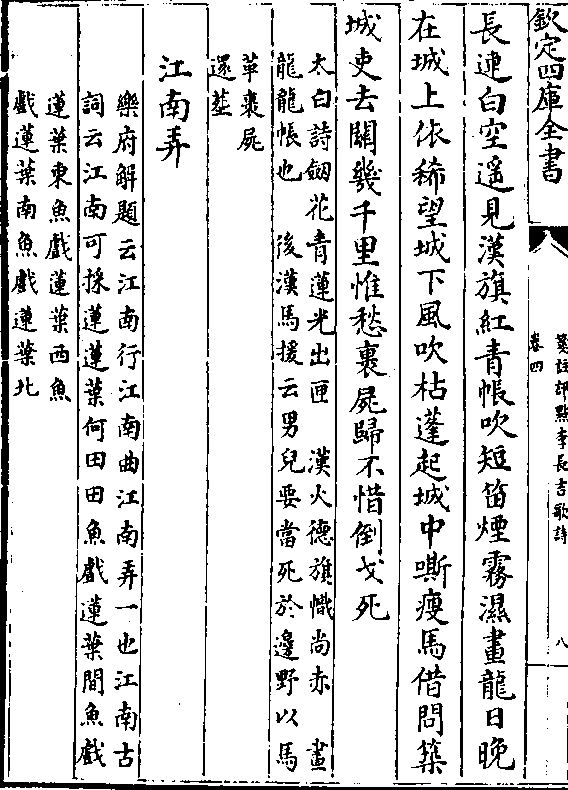 欽定四庫全書
箋註評點李長吉歌詩
卷四
八
長連白空遥見漢旗紅青帳吹短笛煙霧濕畫龍日晚
在城上依稀望城下風吹枯蓬起城中嘶瘦馬借問築
城吏去關幾千里惟愁裹屍歸不惜倒戈死
太白詩劒花青蓮光出匣　漢火德旗幟尚赤　畫
龍龍帳也　後漢馬援云男兒要當死於邊野以馬
革裹屍
還塟
江南弄
樂府解題云江南行江南曲江南弄一也江南古
詞云江南可採蓮蓮葉何田田魚戲蓮葉間魚戲
蓮葉東魚戲蓮葉西魚
戲蓮葉南魚戲蓮葉北